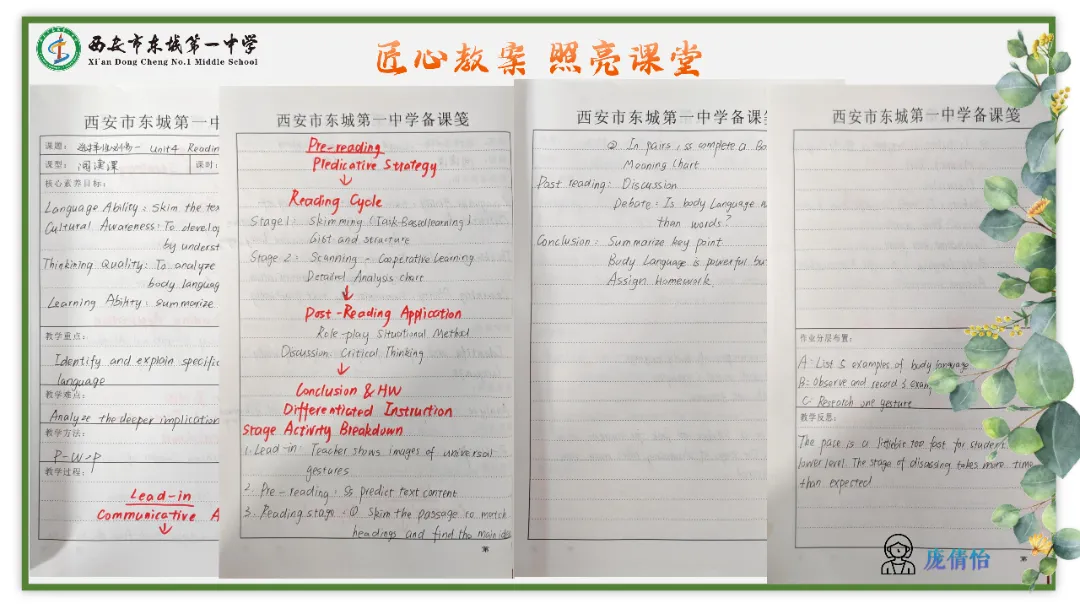 西安市东城第一中学
Xi'an Dong Cheng No.1 Middle School
匠心教案 照亮课堂
西安市东城第一中
课题: 选择性必修一 Unit4 Readin
课型: 阅读课
课时:
核心素养目标:
Language Ability: Skim the tex
Cultural Awareness: To develo
by underst
Thinkining Quality: To analyze
body languag
Learning Ability: Summarize
教学重点:
Identify and explain specific
language
教学难点:
Analyze the deeper implication
教学方法:
P-W-P
教学过程:
Lead-in
Communicative A
↓
西安市东城第一中学备课笺
Pre-reading
Predicative Strategy
↓
Reading Cycle
Stage 1: Skimming (Task-Based learning)
Gist and structure
Stage 2: Scanning - Cooperative Learning
Detailed Analysis chart
↓
Post-Reading Application
Role-play Situational Method
Discussion: Critical Thinking
↓
Conclusion & HW
Differentiated Instruction
Stage Activity Breakdown
1. Lead-in: Teacher shows images of universal
gestures
2. Pre-reading: Ss predict text content
3. Reading stage: ① Skim the passage to match
headings and find the main ide
第
西安市东城第一中学备课笺
② In pairs, ss complete a Bo
Meaning Chart
Post reading: Discussion
Debate: Is body Language
than words?
Conclusion: Summarize key point
Body Language is powerful bu
Assign Homework.
西安市东城第一中学备课笺
作业分层布置:
A: List 5 examples of body language
B: Observe and record 3 exam
C: Research one gesture
教学反思:
The pace is a littlebit too fast for student
lower level. The stage of disscssing takes more time
than expected
第
庞倩怡